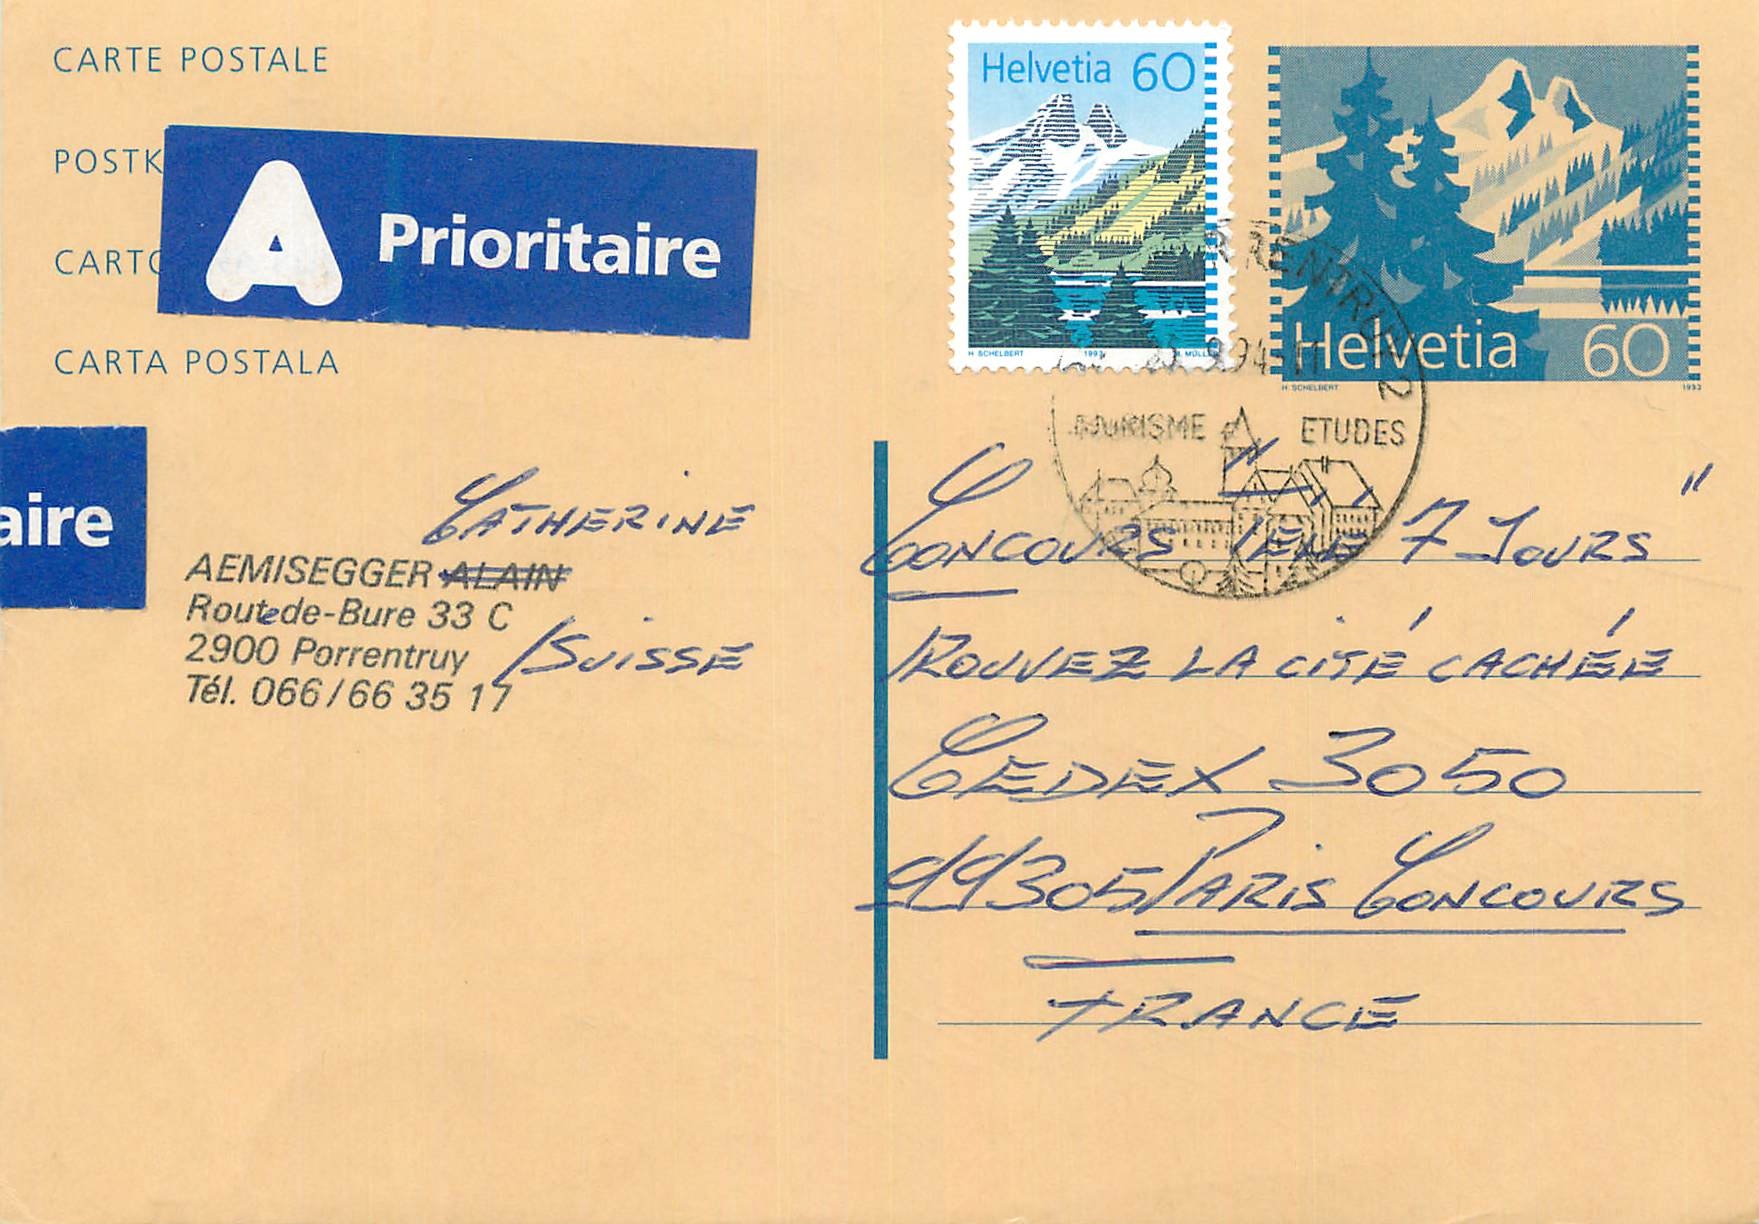 CARTE POSTALE
POSTK
CARTO
CARTA POSTALA
A Prioritaire
aire
Helvetia 60
H. SCHELBERT 1993
Helvetia 60
H. SCHELBERT 1993
PORRENTRUY 2
TOURISME ETUDES
CATHERINE
AEMISEGGER ALAIN
Route de-Bure 33 C
2900 Porrentruy /SUISSE
Tél. 066/66 35 17
CONCOURS "TÉLÉ 7 JOURS"
TROUVEZ LA CITÉ CACHÉE
CEDEX 3050
99305 PARIS CONCOURS
FRANCE